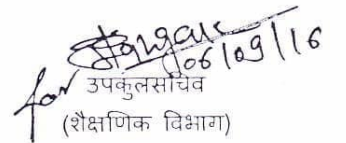 06/09/16
for
उपकुलसचिव
(शैक्षणिक विभाग)